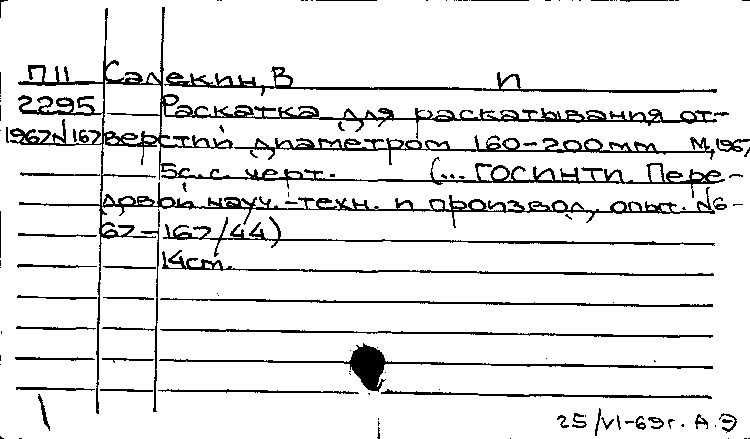 П11 Салекин, В п
2295 Раскатка для раскатывания от-
1967N167 верстий диаметром 160-200мм. М, 1967
5с.с. черт. (... ГОСИНТИ. Пере-
довой науч.-техн. и производ, опыт. N6-
67-167/44)
14ст.
25/VI-69г. А.Э